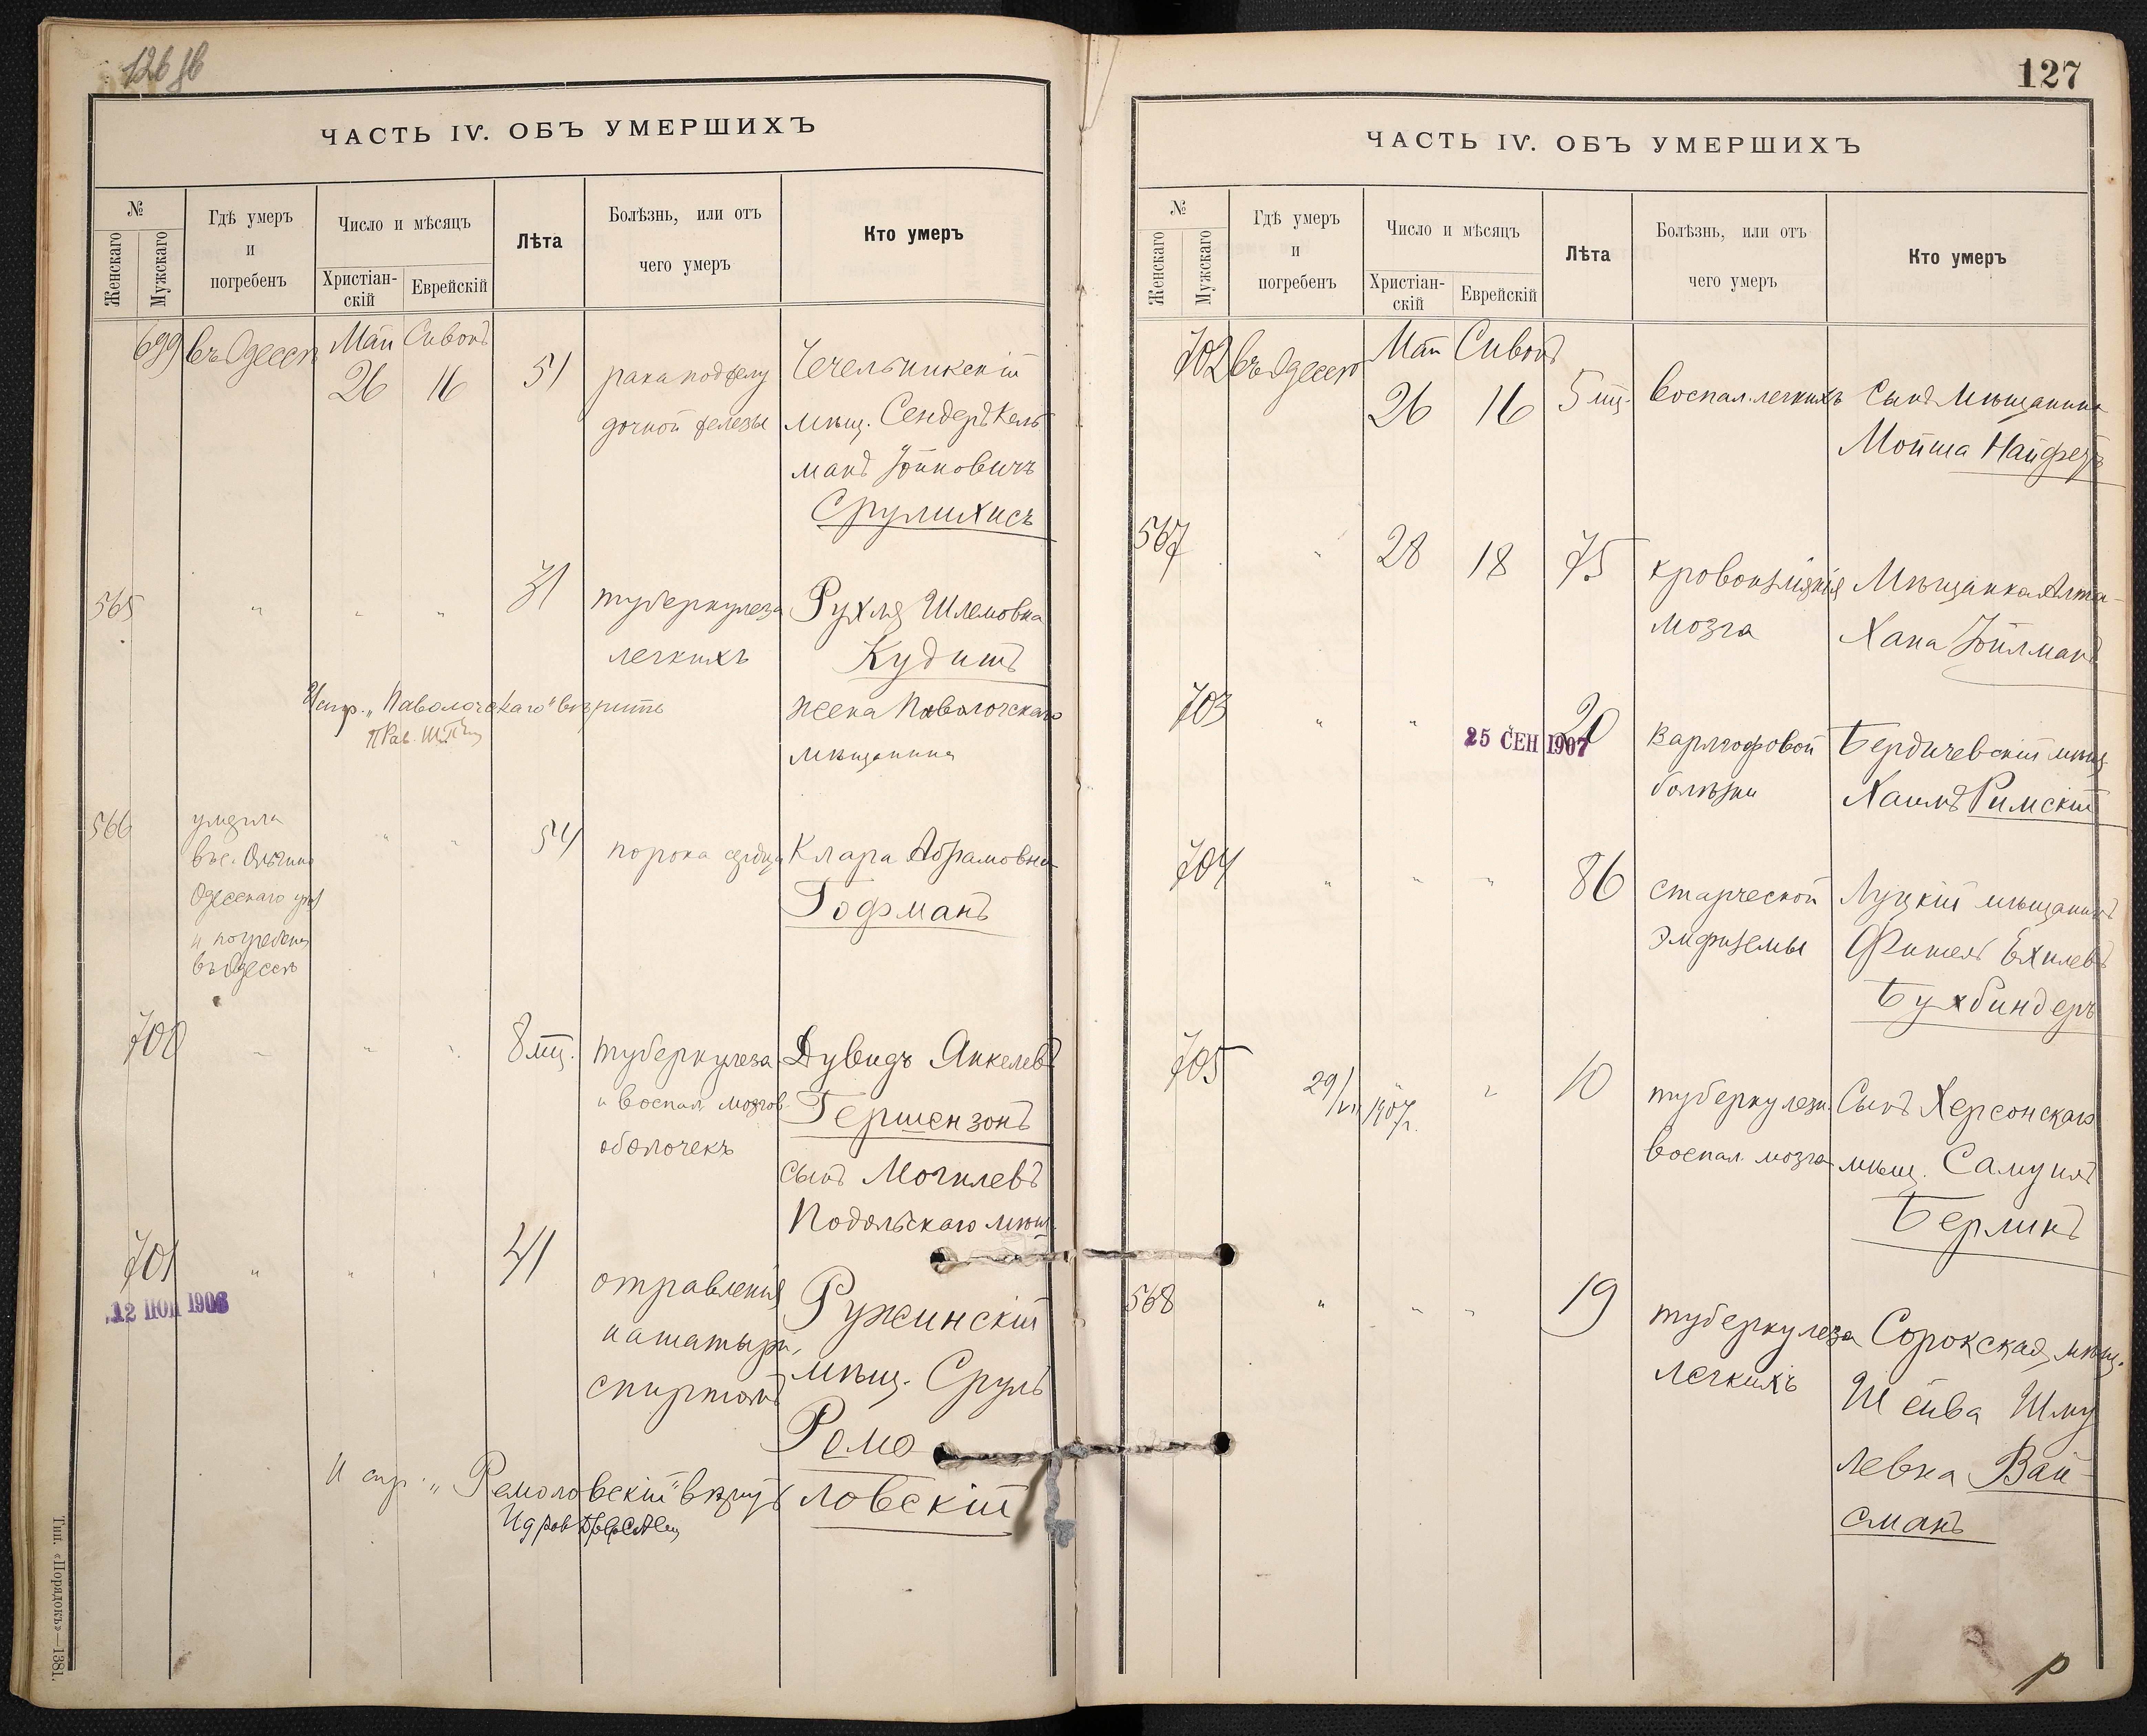 126 об
ЧАСТЬ IV. ОБЪ УМЕРШИХЪ
№
Женскаго
Мужскаго
Гдѣ умеръ
и
погребенъ
Число и мѣсяцъ
Христіан-
скій
Еврейскій
Лѣта
Болѣзнь, или отъ
чего умеръ
Кто умеръ
699 въ Одессѣ Май Сивонъ
26 16 51 рака поджелу Чечельникскій
дочной железы мѣщ. Сендеръ Кель
манъ Іойновичъ
Срулихисъ
565 " " " 31 туберкулеза Рухля Шлемовна
легкихъ Кудишъ
Испр. „Паволочскаго" вѣрить жена Паволочскаго
мѣщанина
566 умерла " " 54 порока сердца Клара Абрамовна
въ с. Ольгино Гофманъ
Одесскаго уѣз
и погребена
въ Одессѣ
700 " " " 8 мц. туберкулеза Дувидъ Янкелевъ
и воспал. мозгов. Гершензонъ
оболочекъ
сынъ Могилевъ
Подольскаго мѣщ.
701 " " " 41 отравленія Ружинскій
12 ІЮН 1906
нашатыр. мѣщ. Сруль
спиртомъ
Ремо
Испр. „Ремоловскій" вѣрить ловскій
Тип. «Порядокъ»—1381.
127
ЧАСТЬ IV. ОБЪ УМЕРШИХЪ
№
Женскаго
Мужскаго
Гдѣ умеръ
и
погребенъ
Число и мѣсяцъ
Христіан-
скій
Еврейскій
Лѣта
Болѣзнь, или отъ
чего умеръ
Кто умеръ
702 въ Одессѣ Май Сивонъ
26 16 5 мц. воспал. легкихъ Сынъ мѣщанина
Мойша Найфельдъ
567 " 28 18 75 кровоизліянія Мѣщанка Алта-
мозга Хана Іойлманъ
703 " " 20 Варлгофовой Бердичевскій мѣщ
25 СЕН 1907
болѣзни Хаимъ Римскій
704 " " " 86 старческой Луцкій мѣщанинъ
эмфиземы Фишель Ехилевъ
Бухбиндеръ
705 29/VII 1907 г. " 10 туберкулезн. Сынъ Херсонскаго
воспал. мозга мѣщ. Самуилъ
Берлинъ
568 " " " 19 туберкулеза Сорокская мѣщ.
легкихъ Шейва Шму
левна Вай-
сманъ